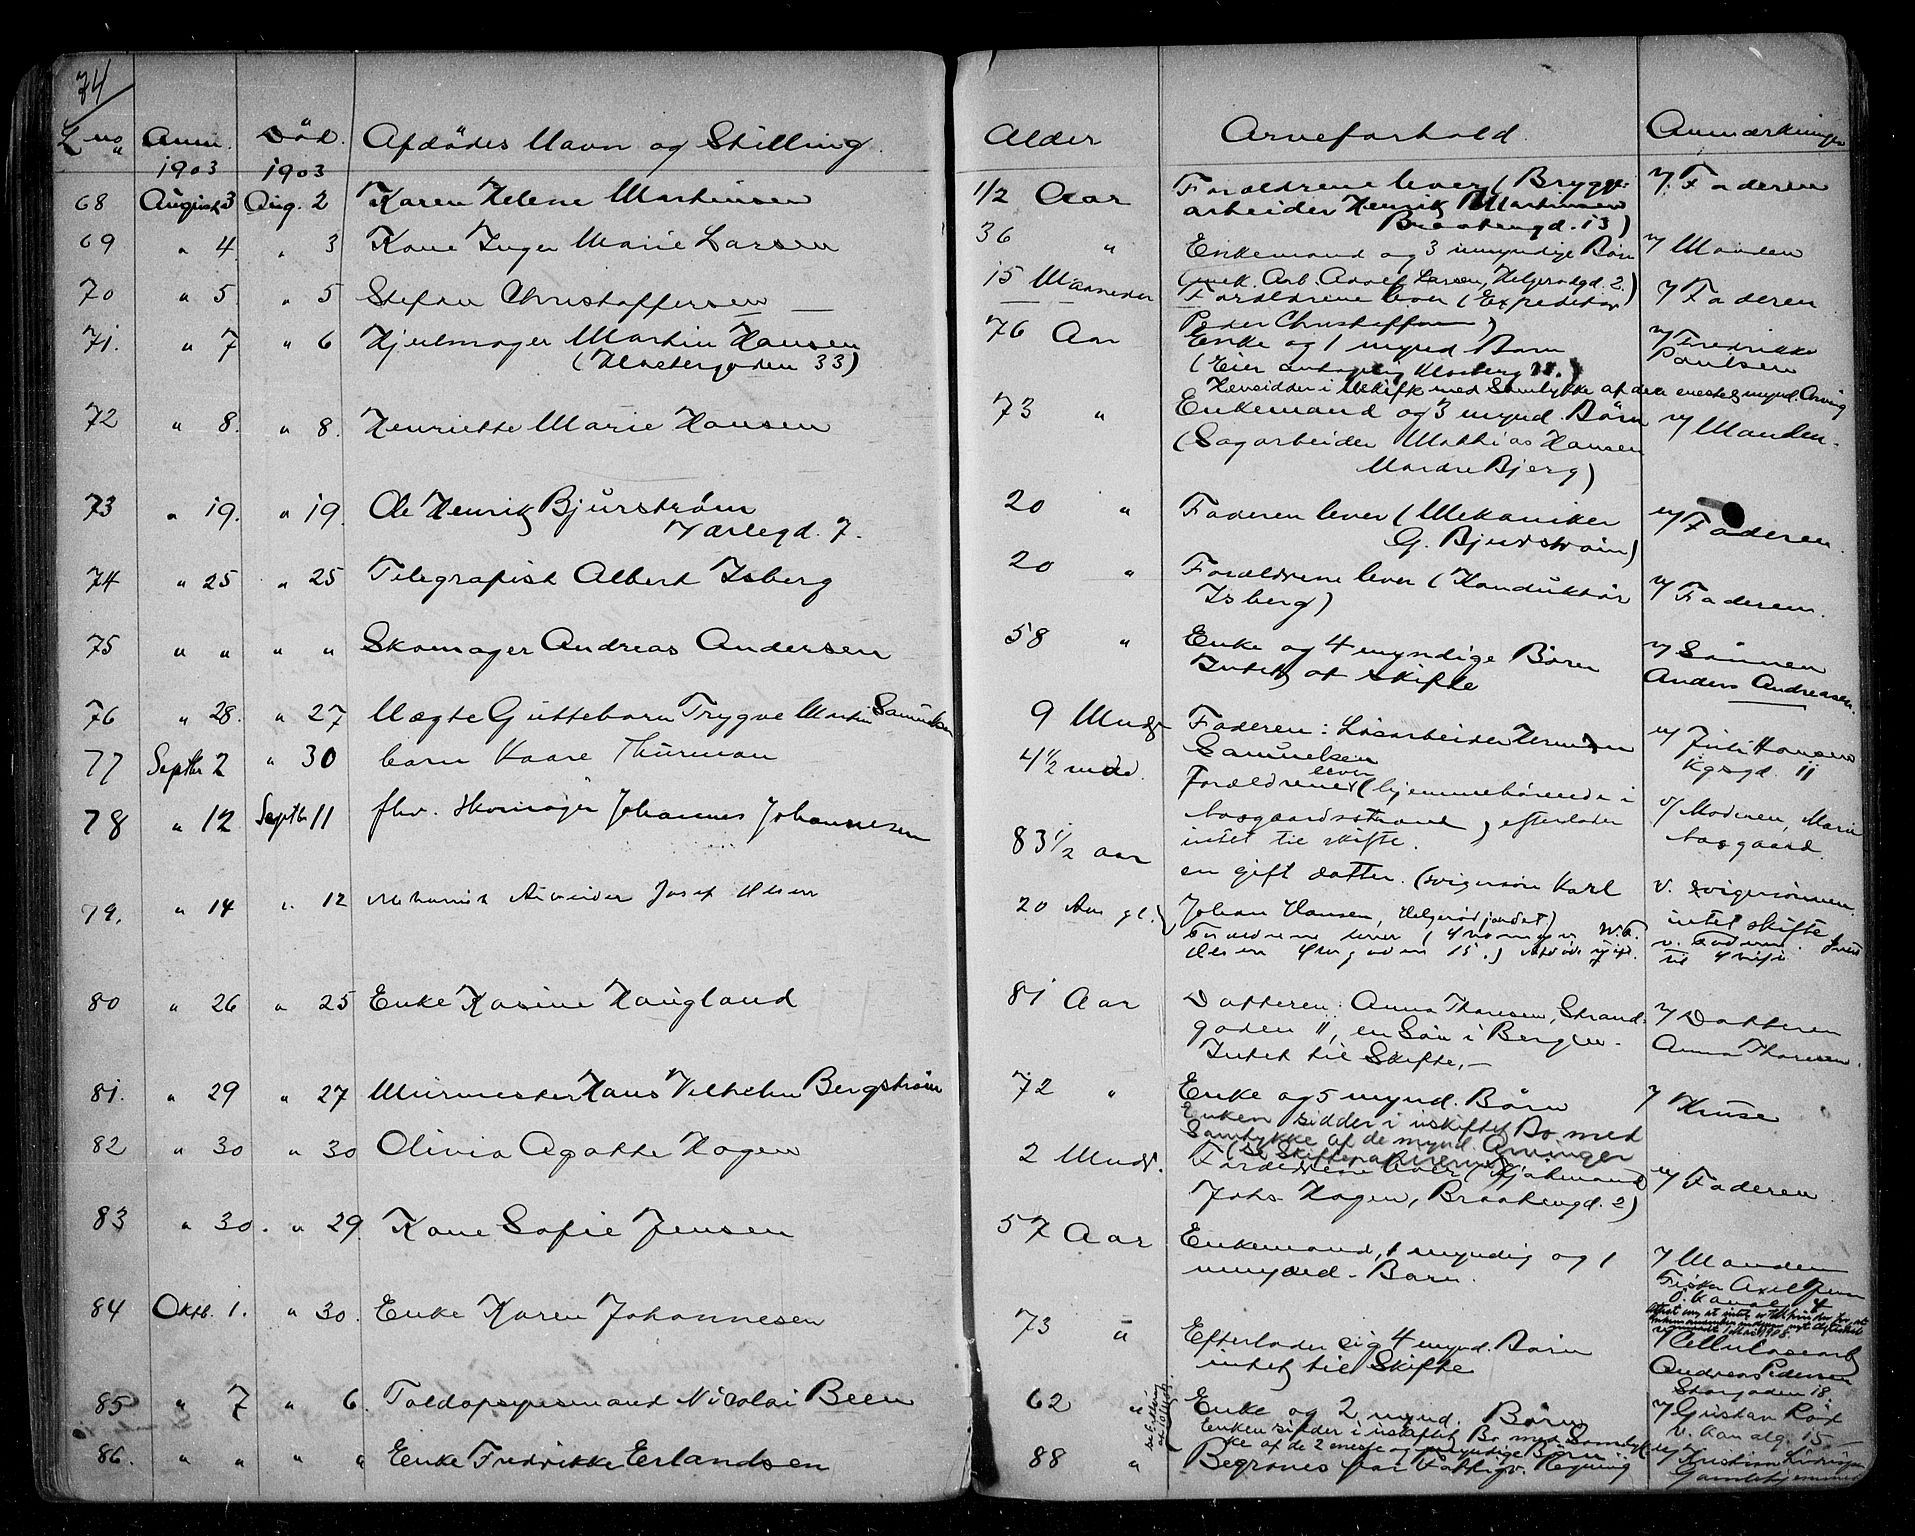 74
L no Anm. Död. Afdödes Navn og Stilling. Alder Arveforhold. Anmærkninger
1903 1903
68 August 3 Aug. 2 Karen Helene Martinsen 1/2 Aar Forældrene lever (Brygge- v/ Faderen
arbeider Henrik Martinsen
Braatengd. 13)
69 " 4 " 3 Kone Inger Marie Larsen 36 " Enkemand og 3 umyndige Börn v/ Manden
(mek. Arb. Larsen, Helgerødgd. 2.)
70 " 5. " 5 Stefan Christoffersen 15 Maaneder Forældrene lever (Expeditør v/ Faderen
Peder Christoffersen)
71. " 7 " 6 Hjulmager Martin Hansen 76 Aar Enke og 1 mynd Barn v/ Fredrikke
(Klostergaden 33) Paulsen
(Eier
Hensidder i Uskifte med Samtykke af den eneste mynd. Arving
72 " 8. " 8. Henriette Marie Hansen 73 " Enkemand og 3 mynd. Börn v/ Manden.
(Sagarbeider Mathias Hansen
Nordre Bjerg)
73 " 19. " 19. Ole Henrik Bjurström 20 " Faderen lever (Mekaniker v/ Faderen.
Varlegd. 7. G. Bjurström)
74 " 25 " 25 Telegrafist Albert Isberg 20 " Forældrene lever (Konduktør v/ Faderen.
Isberg)
75 " " " " Skomager Andreas Andersen 58 " Enke og 4 myndige Börn v/ Sönnen
Intet at skifte Anders Andreasen.
76 " 28. " 27 Uægte Guttebarn Trygve Martin Samuelsen 9 Mndr Faderen: Løsarbeider Herman v/ Juli Hansen
Samuelsen Kgsgd. 11
77 Septbr 2 " 30 barn Kaare Thurman 4 1/2 mdr. Forældrene lever (hjemmehörende i v/ Moderen, Marie
Aasgaardsstrand, efterlader Aasgaard.
intet til skifte.
78 " 12 Septbr 11 fhv. Skomager Johannes Johannesen 83 1/2 aar en gift datter. (svigersön Karl v. svigersönnen.
Johan Hansen, Helgerødjordet) intet skifte
79. " 14 " 12 Mekanisk Arbeider Josef Olsen 20 Aar gl. Forældrene lever (
Olsen Storgaden 15.) v. Faderen. Intet
til skifte
80 " 26 " 25 Enke Karine Haugland 81 Aar Datteren: Anna Thoresen, Strand- v/ Datteren
gaden 11, en Sön i Bergen. Anna Thoresen.
Intet til Skifte. —
81. " 29 " 27 Murmester Hans Vilhelm Bergström 72 " Enke og 5 mynd. Börn v/ Kruse
Enken sidder i uskiftet Bo med
Samtykke af de mynd. Arvinger
(se Skiftepapirerne)
82 " 30 " 30 Olivia Agathe Hagen 2 Mndr. Forældrene lever (Sjømand v/ Faderen.
Johs. Hagen, Braatengd. 2)
83 " 30. " 29. Kone Sofie Jensen 57 Aar Enkemand, 1 myndig og 1 v/ Manden
umynd. Barn. Fisker Axel Jensen
84 Oktb. 1. " 30. Enke Karen Johannesen 73 " Efterlader sig 4 mynd. Börn v/ Cellulosearb
intet til Skifte Andreas Pedersen
Storgaden 18
85 " 7 " 6. Toldopsynsmand Nicolai Been 62 " Enke og 2 mynd. Börn v/ Gustav Röd
Enken sidder i uskiftet Bo med Samtyk- v. Kanalg. 15
ke af de 2 eneste og myndige Börn
86. " " " " Enke Fredrikke Erlandsen 88 " Begraves for Fattigv. Regning v/ Kristian
Gamlehjemmet